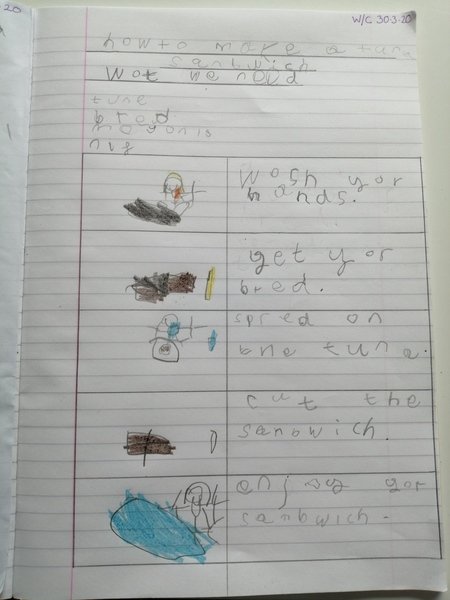 20
W/C 30.3.20
how to make a tuna
sandwich
Wot we need
tune
bred
mayonis
nif
Wosh yor
hands.
get yor
bred.
spred on
the tuna.
cut the
sandwich.
enjoy yor
sandwich.